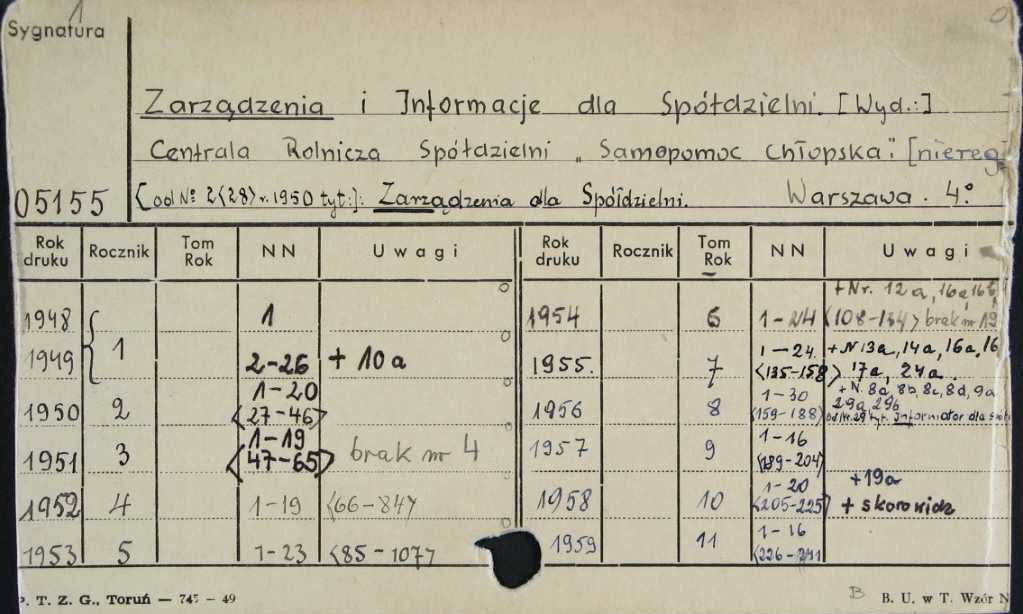 1
Sygnatura
Zarządzenia i Informacje dla Spółdzielni. [Wyd.:]
Centrala Rolnicza Spółdzielni „Samopomoc Chłopska". [niereg
05155 [od Nº 2<28> r. 1950 tyt:]: Zarządzenia dla Spółdzielni. Warszawa. 4º
Rok druku Rocznik Tom Rok NN Uwagi Rok druku Rocznik Tom Rok NN Uwagi
1948 1 1
1949 2-26 + 10a
1950 2 1-20 <27-46>
1951 3 1-19 <47-65> brak nr 4
1952 4 1-19 <66-84>
1953 5 1-23 <85-107>
1954 6 1-24 <108-134> brak nr 19 + Nr. 12a, 16a, 16b,
1955. 7 1-24. <135-158> + N 13a, 14a, 16a, 16 17a, 24a.
1956 8 1-30 <159-188> + N. 8a, 8b, 8c, 8d, 9a 29a, 29b Informator dla
1957 9 1-16 <189-204>
1958 10 1-20 <205-225> +19a + skorowidz
1959 11 1-16 <226-241
P. T. Z. G., Toruń — 747 – 49 B B. U. w T. Wzór N